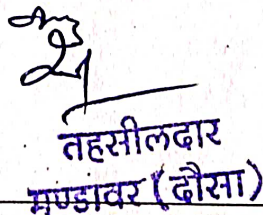 तहसीलदार
मण्डावर (दौसा)